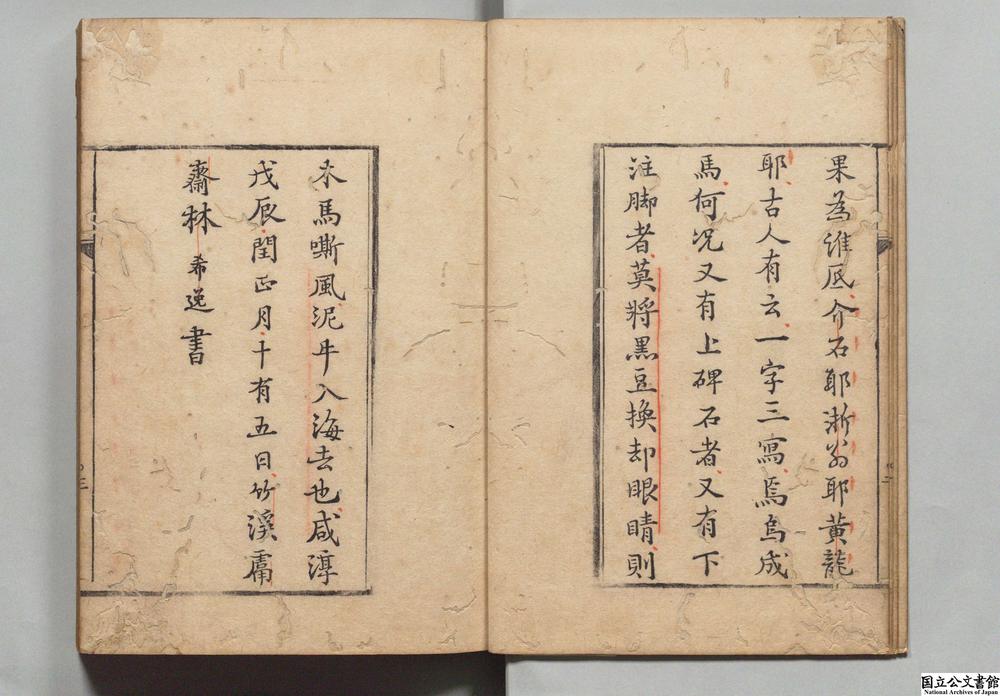 果為誰底介石耶浙翁耶黃龍
耶古人有云一字三寫焉烏成
馬何況又有上碑石者又有下
注脚者莫將黑豆換却眼睛則
木馬嘶風泥牛入海去也咸淳
戊辰閏正月十有五日竹溪鬳
齋林希逸書
国立公文書館
National Archives of Japan